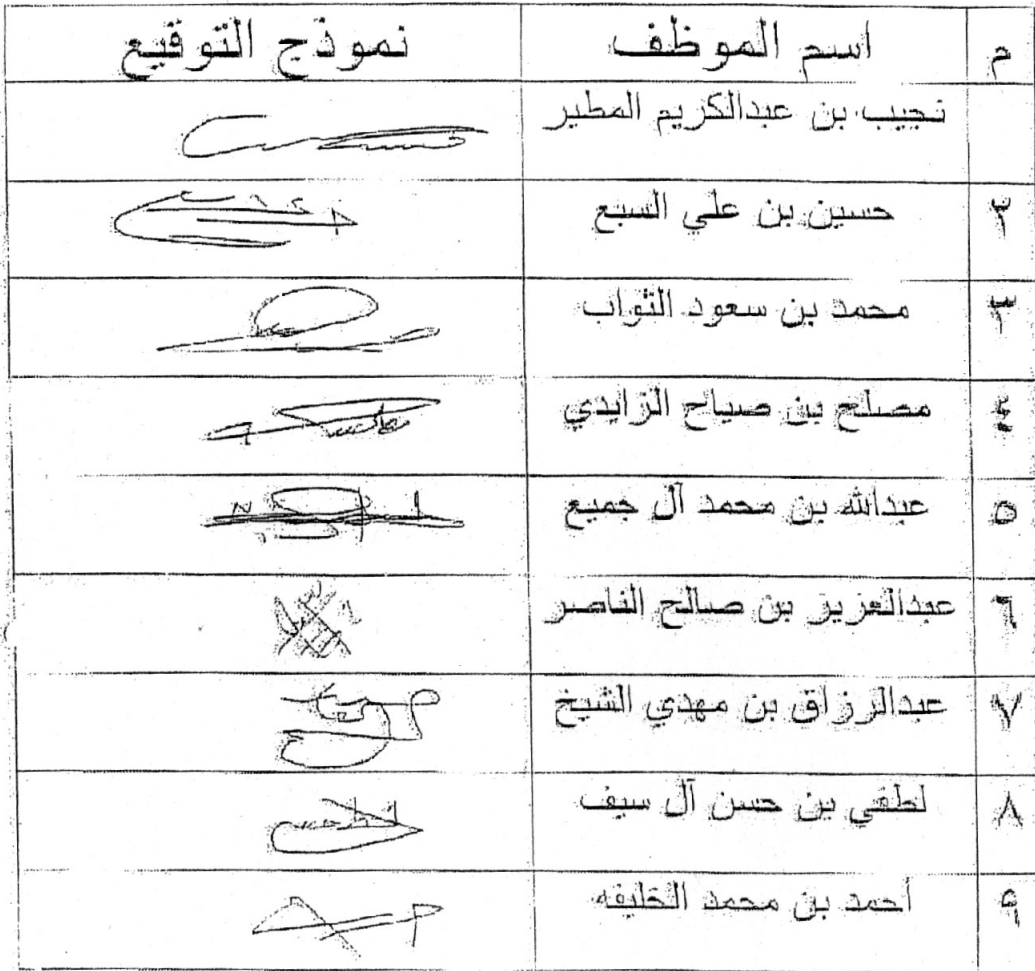 م اسم الموظف نموذج التوقيع
نجيب بن عبدالكريم المطير
٢ حسين بن علي السبع
٣ محمد بن سعود التواب
٤ مصلح بن صياح الزايدي
٥ عبدالله بن محمد آل جميع
٦ عبدالعزيز بن صالح الناصر
٧ عبدالرزاق بن مهدي الشيخ
٨ لطفي بن حسن آل سيف
٩ أحمد بن محمد الخليفه